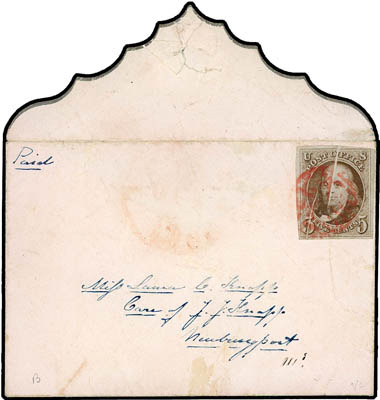 Paid
U S
POST OFFICE
5 FIVE CENTS 5
Miss Laura C. Knapp
Care of J. J. Knapp
Newburyport
Ms
B